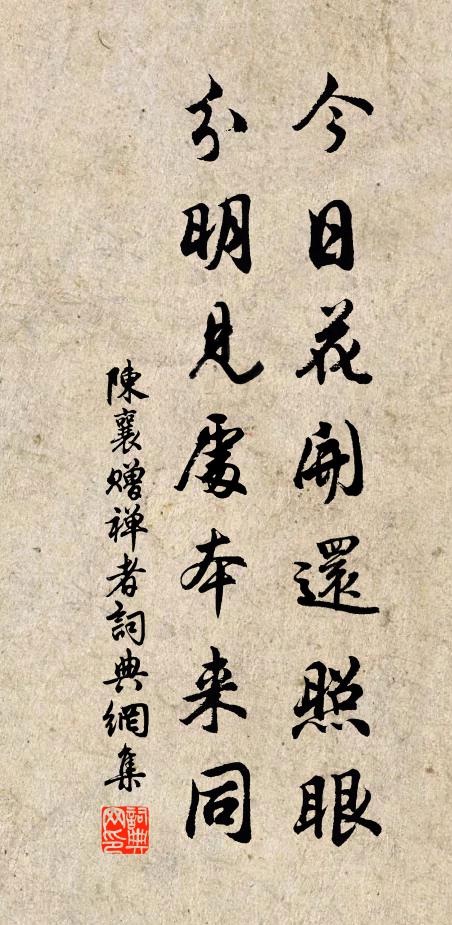 今日花開還照眼
分明見處本来同
陳襄贈禅者詞典網集
詞典网印